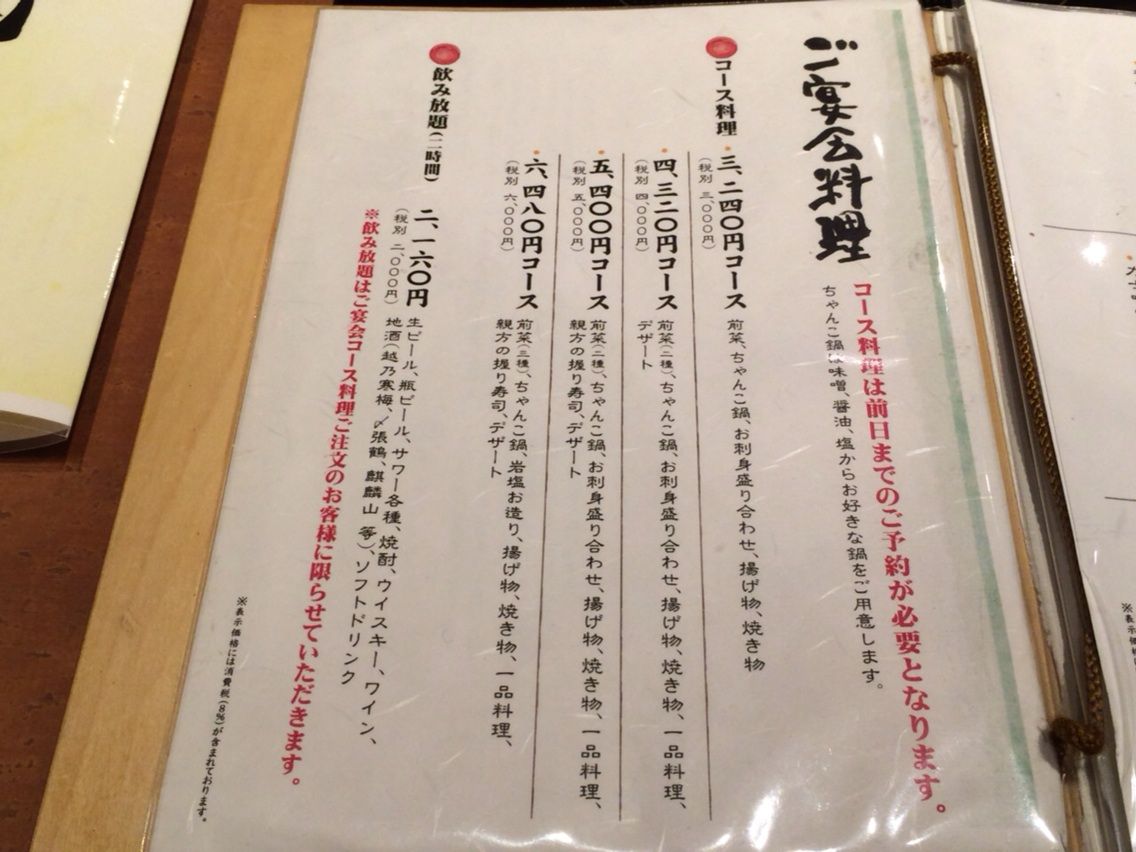 ご宴会料理
コース料理は前日までのご予約が必要となります。
ちゃんこ鍋は味噌、醤油、塩からお好きな鍋をご用意します。
コース料理
三、二四〇円コース
(税別 三、〇〇〇円)
前菜、ちゃんこ鍋、お刺身盛り合わせ、揚げ物、焼き物
四、三二〇円コース
(税別 四、〇〇〇円)
前菜(二種)、ちゃんこ鍋、お刺身盛り合わせ、揚げ物、焼き物、一品料理、
デザート
五、四〇〇円コース
(税別 五、〇〇〇円)
前菜(二種)、ちゃんこ鍋、お刺身盛り合わせ、揚げ物、焼き物、一品料理、
親方の握り寿司、デザート
六、四八〇円コース
(税別 六、〇〇〇円)
前菜(三種)、ちゃんこ鍋、岩塩お造り、揚げ物、焼き物、一品料理、
親方の握り寿司、デザート
飲み放題(二時間)
二、一六〇円
(税別 二、〇〇〇円)
生ビール、瓶ビール、サワー各種、焼酎、ウイスキー、ワイン、
地酒(越乃寒梅、〆張鶴、麒麟山 等)、ソフトドリンク
※飲み放題はご宴会コース料理ご注文のお客様に限らせていただきます。
※表示価格には消費税(8%)が含まれております。